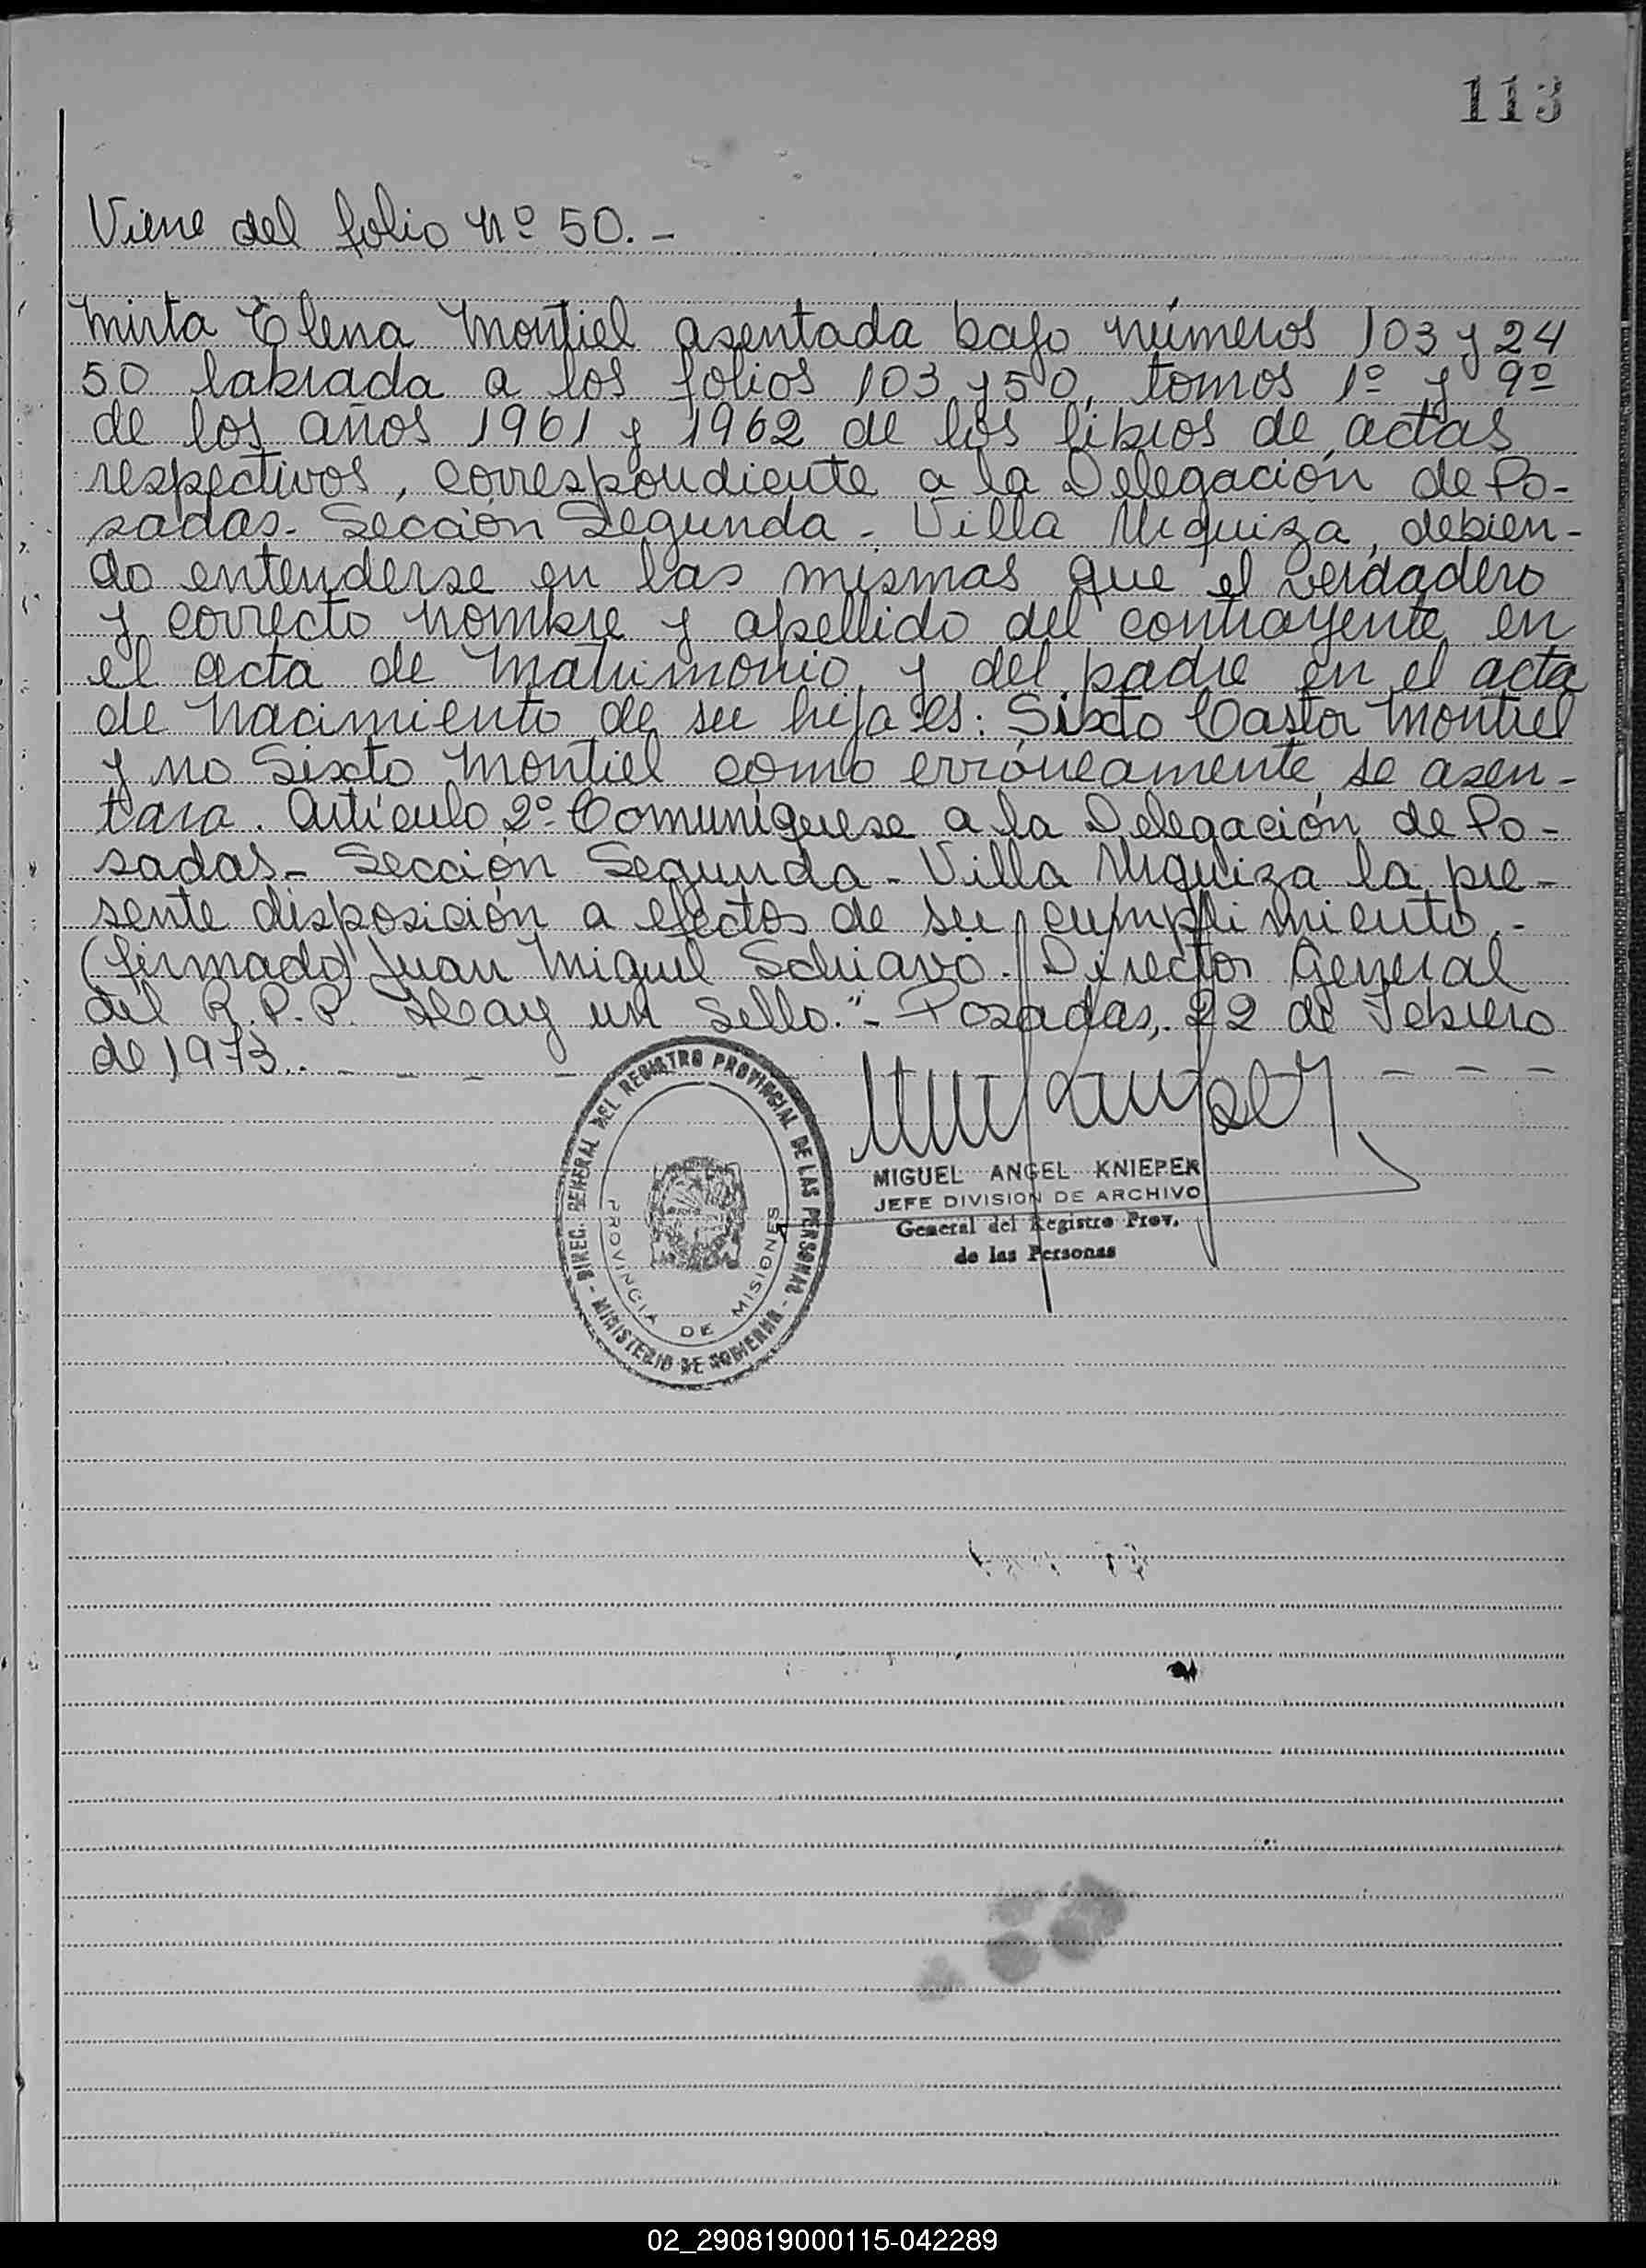 113
Viene del folio Nº 50.-
Mirta Elena Montiel asentada bajo números 103 y 24
50 labrada a los folios 103 y 50, tomos 1º y 9º
de los años 1961 y 1962 de los libros de actas
respectivos, correspondiente a la Delegación de Po-
sadas- Sección Segunda - Villa Urquiza, debien-
do entenderse en las mismas que el verdadero
y correcto nombre y apellido del contrayente en
el acta de Matrimonio y del padre en el acta
de Nacimiento de su hija es: Sixto Castor Montiel
y no Sixto Montiel como erróneamente se asen-
tara. Artículo 2º Comuníquese a la Delegación de Po-
sadas- Sección Segunda - Villa Urquiza la pre-
sente disposición a efectos de su cumplimiento.-
(firmado) Juan Miguel Schiavo. Director General
del R.P.P. Hay un Sello."- Posadas, 22 de Febrero
de 1973.. - - - -
- - -
DIREC. GENERAL DEL REGISTRO PROVINCIAL DE LAS PERSONAS - MINISTERIO DE GOBIERNO -
PROVINCIA DE MISIONES
MIGUEL ANGEL KNIEPER
JEFE DIVISION DE ARCHIVO
General del Registro Prov.
de las Personas
02_290819000115-042289